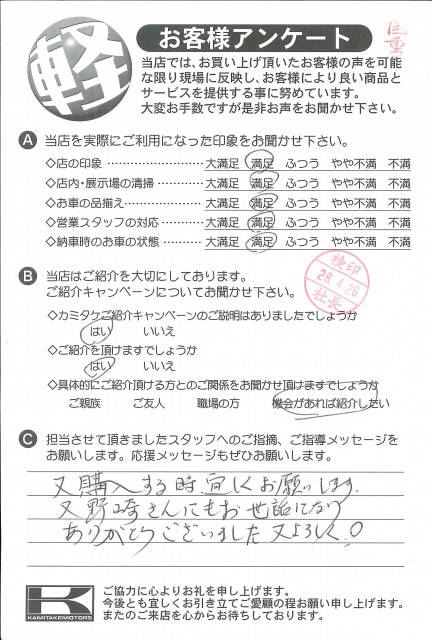 軽
お客様アンケート
当店では、お買い上げ頂いたお客様の声を可能
な限り現場に反映し、お客様により良い商品と
サービスを提供する事に努めています。
大変お手数ですが是非お声をお聞かせ下さい。
A 当店を実際にご利用になった印象をお聞かせ下さい。
◇店の印象 大満足 満足 ふつう やや不満 不満
◇店内・展示場の清掃 大満足 満足 ふつう やや不満 不満
◇お車の品揃え 大満足 満足 ふつう やや不満 不満
◇営業スタッフの対応 大満足 満足 ふつう やや不満 不満
◇納車時のお車の状態 大満足 満足 ふつう やや不満 不満
検印
28.4.26
社長
B 当店はご紹介を大切にしてあります。
ご紹介キャンペーンについてお聞かせ下さい。
◇カミタケご紹介キャンペーンのご説明はありましたでしょうか
はい いいえ
◇ご紹介を頂けますでしょうか
はい いいえ
◇具体的にご紹介頂ける方とのご関係をお聞かせ頂けますでしょうか
ご親族 ご友人 職場の方 機会があれば紹介したい
C 担当させて頂きましたスタッフへのご指摘、ご指導メッセージを
お願いします。応援メッセージもぜひお願いします。
又購入する時宜しくお願いします。
又野崎さんにもお世話になり
ありがとうございました又よろしく!○
K
KAMITAKEMOTORS
ご協力に心よりお礼を申し上げます。
今後とも宜しくお引き立てご愛顧の程お願い申し上げます。
またのご来店を心からお待ちしております。